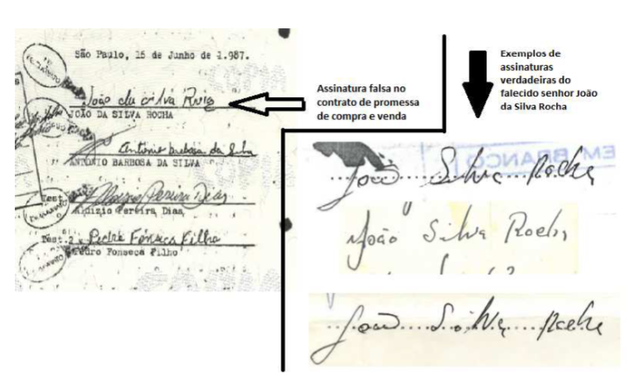 São Paulo, 15 de Junho de 1.987.
João da Silva
JOÃO DA SILVA ROCHA
Antonio Barbosa da Silva
ANTONIO BARBOSA DA SILVA
Pereira Dias
Pereira Dias
Test.2 Pedro Fonseca Filho
Pedro Fonseca Filho
Assinatura falsa no
contrato de promessa
de compra e venda
Exemplos de
assinaturas
verdadeiras do
falecido senhor João
da Silva Rocha
EM BRANCO
João Silva Rocha
João Silva Rocha
João Silva Rocha